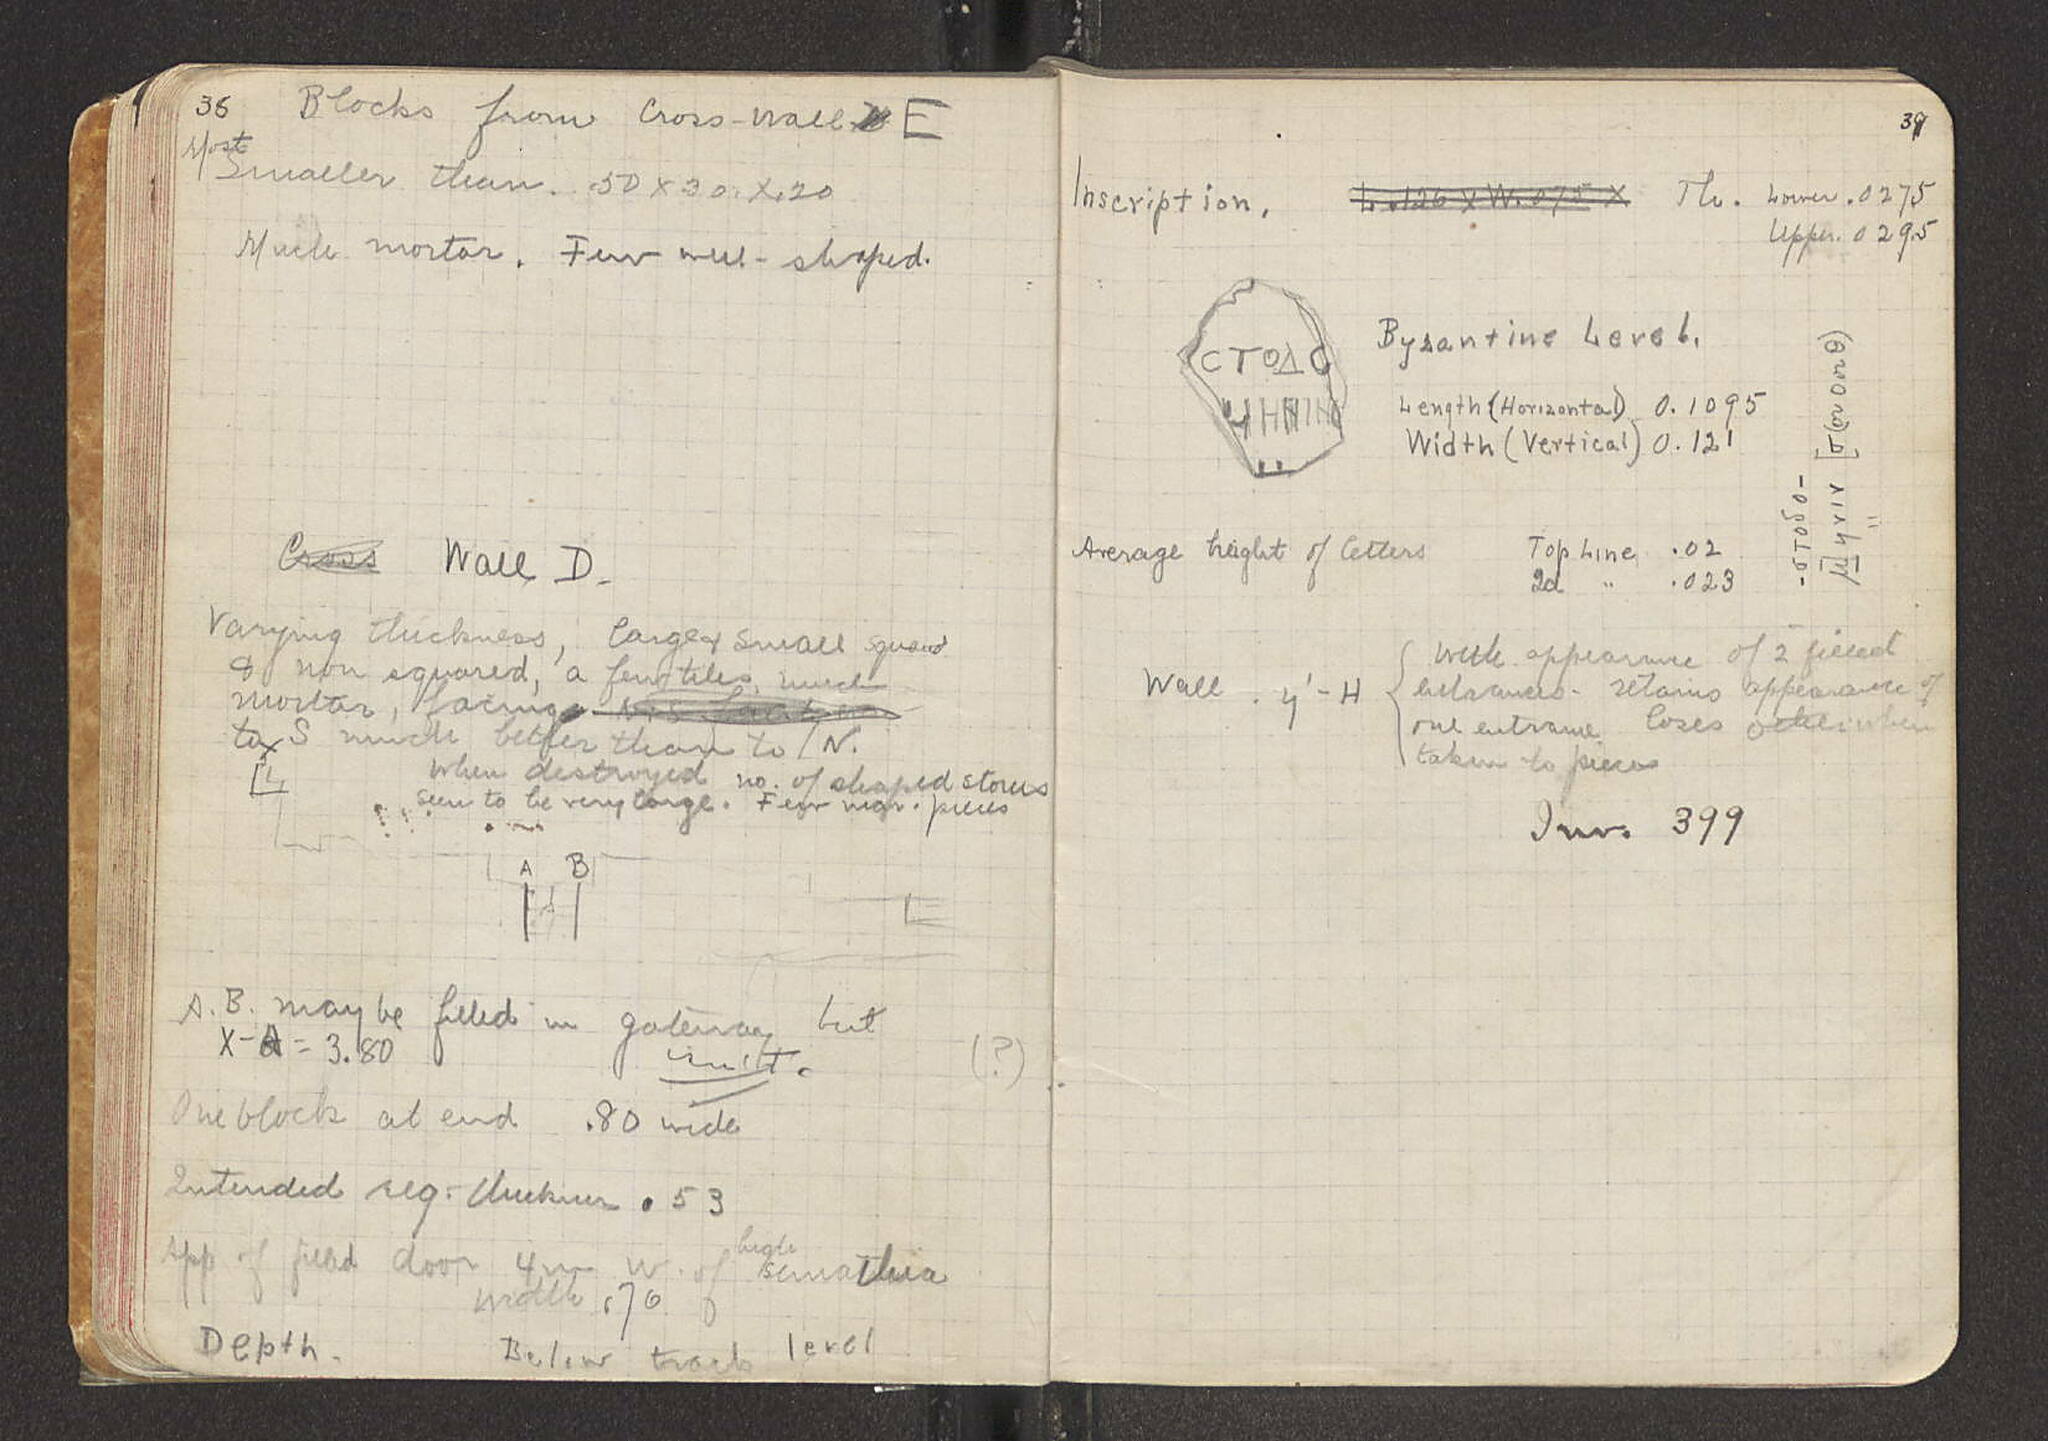 36 Blocks from Cross-wall E
Most
Smaller than .50 x 30. x .20
Much mortar. Few well-shaped.
Cross Wall D.
Varying thickness, large & small squared
& non squared, a few tiles, much
mortar, facing
to S much better than to N.
x
L
When destroyed no. of shaped stones
seen to be very large. Few mar. pieces
A B
A.B. may be filled in gateway but
X-A = 3.80
(?)
One block at end .80 wide
Intended reg. thickness .53
App of filled door 4m W. of high
width .70
Depth. Below track level
37
Inscription. L .126 x W. .075 x Th. Lower .0275
Upper .0295
CTOΔC
Byzantine Level.
Length (Horizontal) 0.1095
Width (Vertical) 0.121
Average height of letters Top Line .02
2d " .023
-στοδο-
Wall . y'-H with appearance of 2 filled
entrances - retains appearance of
one entrance loses other when
taken to pieces
Inv. 399